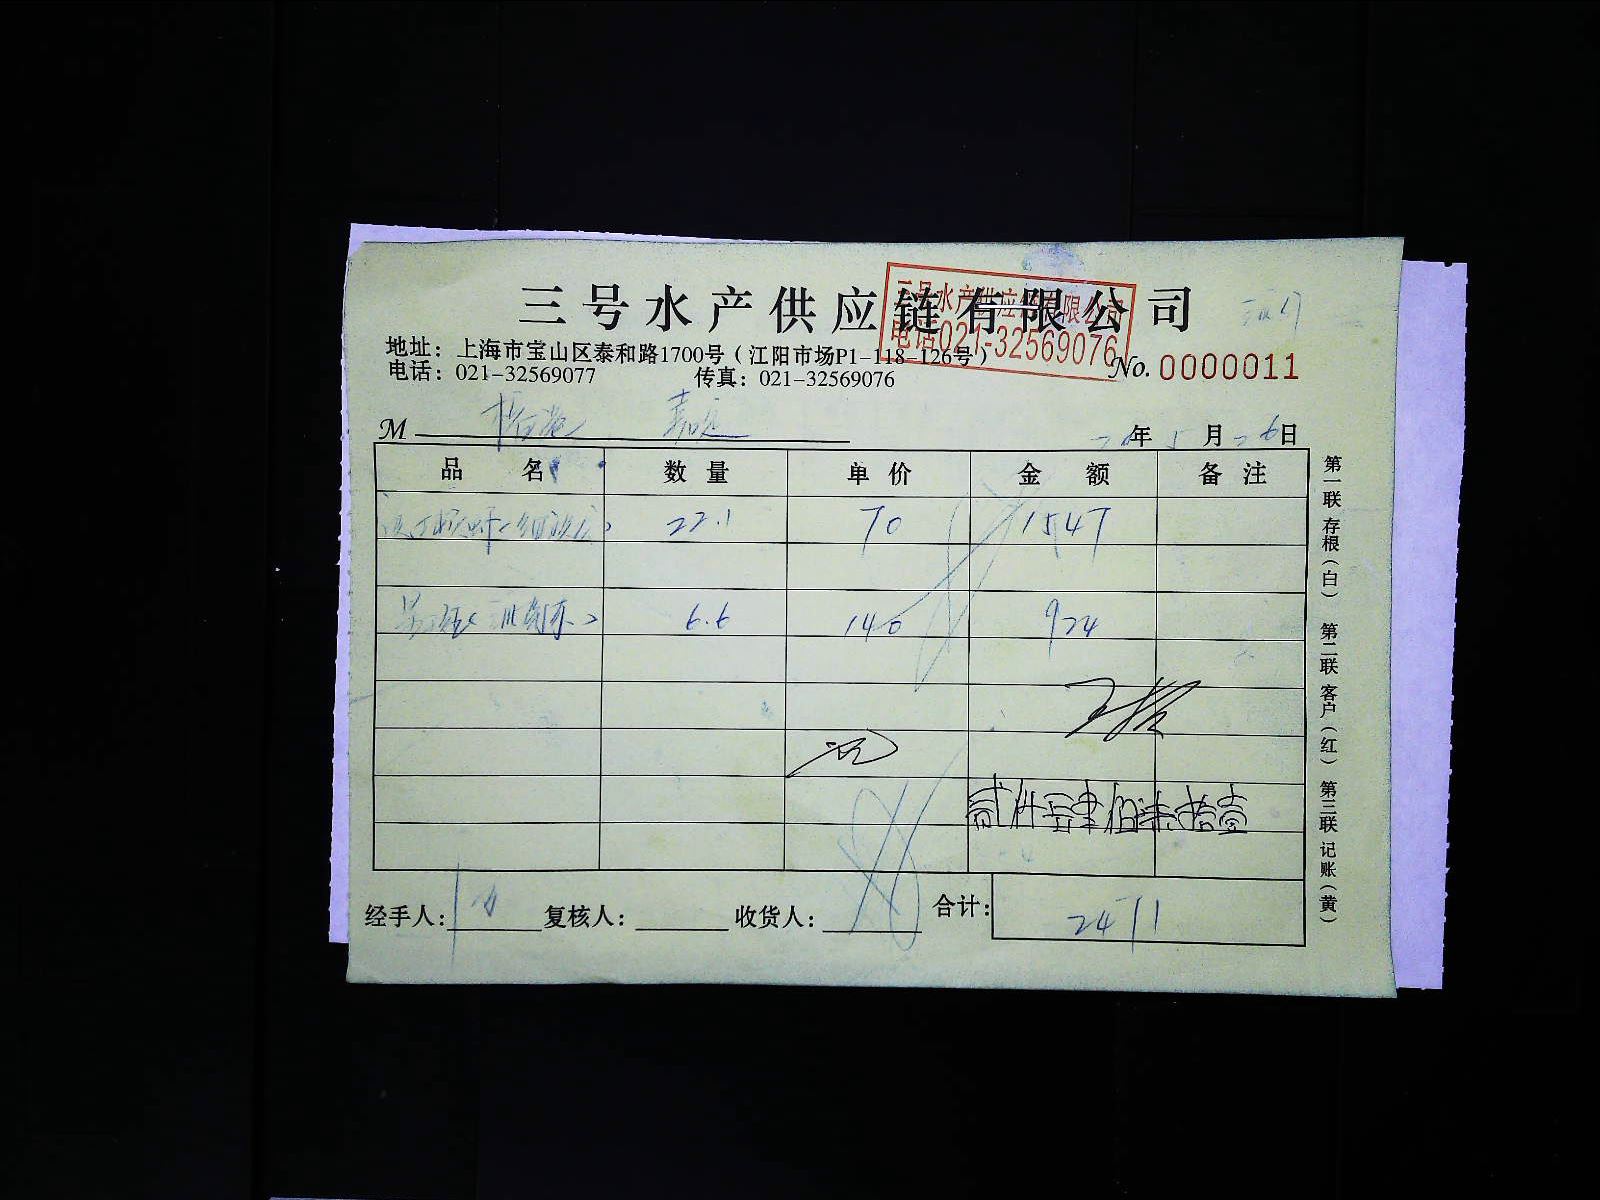 三号水产供应链有限公司
三号水产供应链有限公司
电话021-32569076
地址：上海市宝山区泰和路1700号（江阳市场P1-118-126号）
电话：021-32569077 传真：021-32569076
No. 0000011
M
年5月26日
品名 数量 单价 金额 备注
22.1 70 1547
6.6 140 924
贰仟肆佰柒拾壹
经手人： 复核人： 收货人： 合计： 2471
第一联 存根（白） 第二联 客户（红） 第三联 记账（黄）